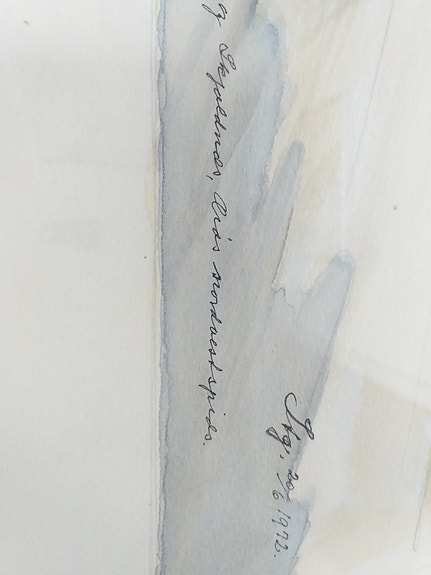 og Skjoldnæs, Ærø's nordvestspids.
Stg. 20/6 1972.